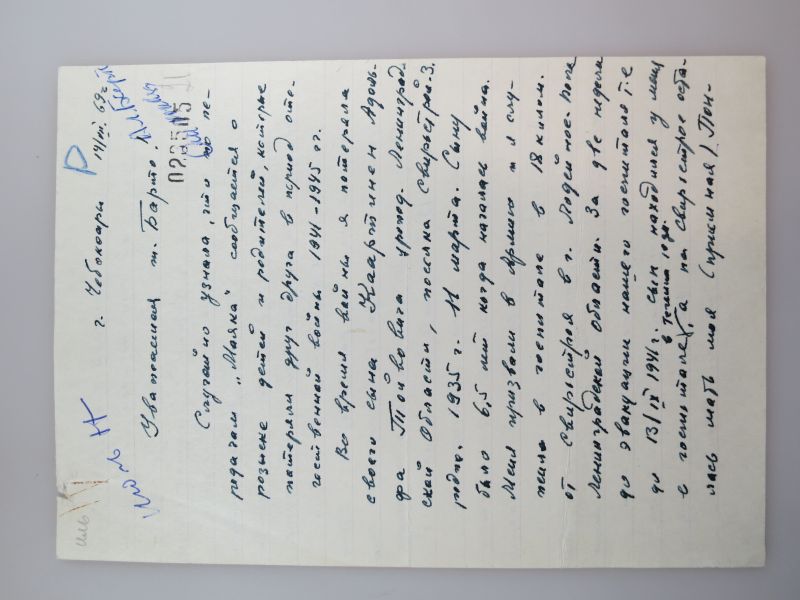 г. Чебоксары 14/VIII 69 г.
022505
Уважаемая т. Барто.
Случайно узнала, что по пе-
редачам "Маяка" сообщается о
розыске детей и родителей, которые
потеряли друг друга в период оте-
чественной войны 1941-1945 гг.
Во время войны я потеряла
своего сына Каартинен Адоль-
фа Тойвовича урожд. Ленинград-
ской области, поселка Свирьстрой-3.
рожд. 1935 г. 11 марта. Сыну
было 6,5 лет когда началась война.
Меня призвали в Армию и я слу-
жила в госпитале в 18 килом.
от Свирьстроя в г. Лодейное-Поле
Ленинградской области. За две недели
до эвакуации нашего госпиталя т-е
до 13/IX 1941 г. сын находился у меня
в госпитале, в течении 10 дн. а на Свирьстрое оста-
лась мать моя (приемная). Пон-